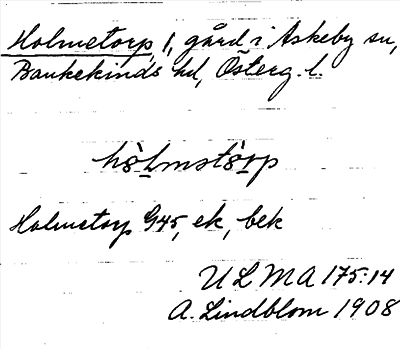 Holmetorp, 1, gård i Askeby sn,
Bankekinds hd, Österg. l.
hòlmstòrp
Holmetorp G45, ek, bek
ULMA 175:14
A. Lindblom 1908